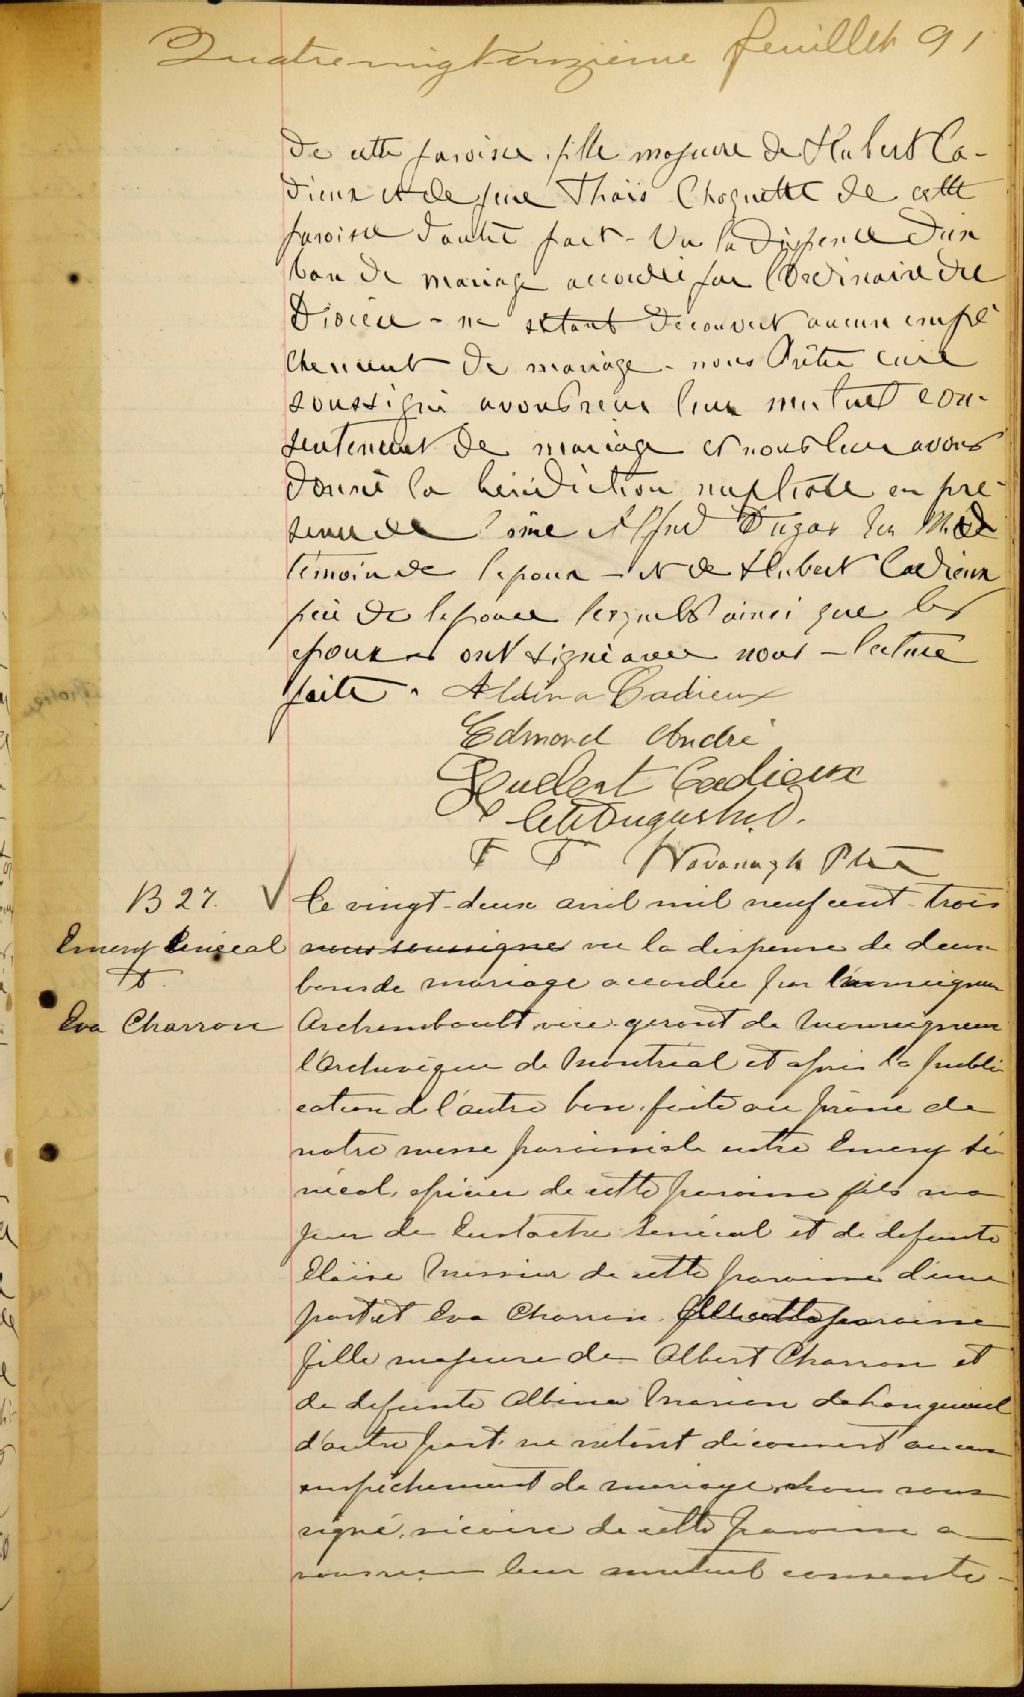 Quatrevingt onzieme feuillet 91
de cette paroisse, fille majeure de Hubert Ca-
dieux et de feue Thaïs Choquette de cette
paroisse d'autre part - Vu la dispense d'un
ban de mariage accordée par l'Ordinaire du
Diocèse - ne s'étant découvert aucun empê
chement de mariage - nous Prêtre curé
soussigné avons reçu leur mutuel con-
sentement de mariage et nous leur avons
donné la bénédiction nuptiale en pré-
sence de Alfred Dugas
témoin de l'époux - et de Hubert Cadieux
père de l'épouse lesquels ainsi que les
epoux ont signé avec nous - lecture
faite. Aldina Cadieux
Edmond André
Hubert Cadieux
Dugas M.D.
Kavanagh Ptre
B 27. Le vingt-deux avril mil neuf cent-trois
Emery Senécal nous soussigné vu la dispense de deux
& bans de mariage accordée par Monseigneur
Eva Charron Archambault vice-gérant de Monseigneur
l'Archevêque de Montréal et après la publi
cation de l'autre ban faite au prône de
notre messe paroissiale entre Emery Sé
nécal, épicier de cette paroisse fils ma
jeur de Eustache Senécal et de defunte
Eloise Messier de cette paroisse d'une
part et Eva Charron, de cette paroisse
fille majeure de Albert Charron et
de defunte Albina Marion de Longueuil
d'autre part, ne s'étant découvert aucun
empêchement de mariage, nous sous
signé, vicaire de cette paroisse a
vons reçu leur mutuel consente-